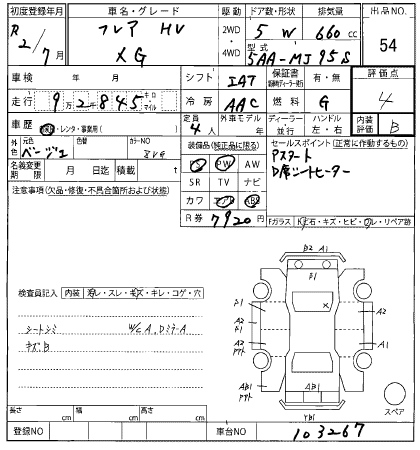 初度登録年月 車名・グレード 駆動 ドア数・形状 排気量 出品NO.
R2/7月 フレア HV XG 2WD・4WD 5 W 660cc 54
型式 5AA-MJ95S
車検 年 月 シフト IAT 保証書 有・無 評価点
走行 92845 キロ マイル 冷房 AAC 燃料 G 4
車歴 自家用・レンタ・事業用( ) 定員 4人 外車モデル 年 ディーラー 並行 ハンドル 左・右 内装評価 B
外色 元色 ベージュ 色替 カラーNO
装備品(純正品に限る) セールスポイント(正常に作動するもの)
名義変更期限 月 日迄 積載 t
PS PW AW Pスタート
SR TV ナビ D席シートヒーター
カワ エアB ABS
注意事項(欠品・修復・不具合箇所および状態)
R券 7920円
Fガラス 飛石・キズ・ヒビ・ワレ・リペア跡
B2 A1
B1
検査員記入 内装 汚レ・スレ・キズ・キレ・コゲ・穴
シートシミ W/C A, DミラーA
キズB
A2
A1
AB1
YB1
スペア
長さ cm 幅 cm 高さ cm
登録NO 車台NO 103267